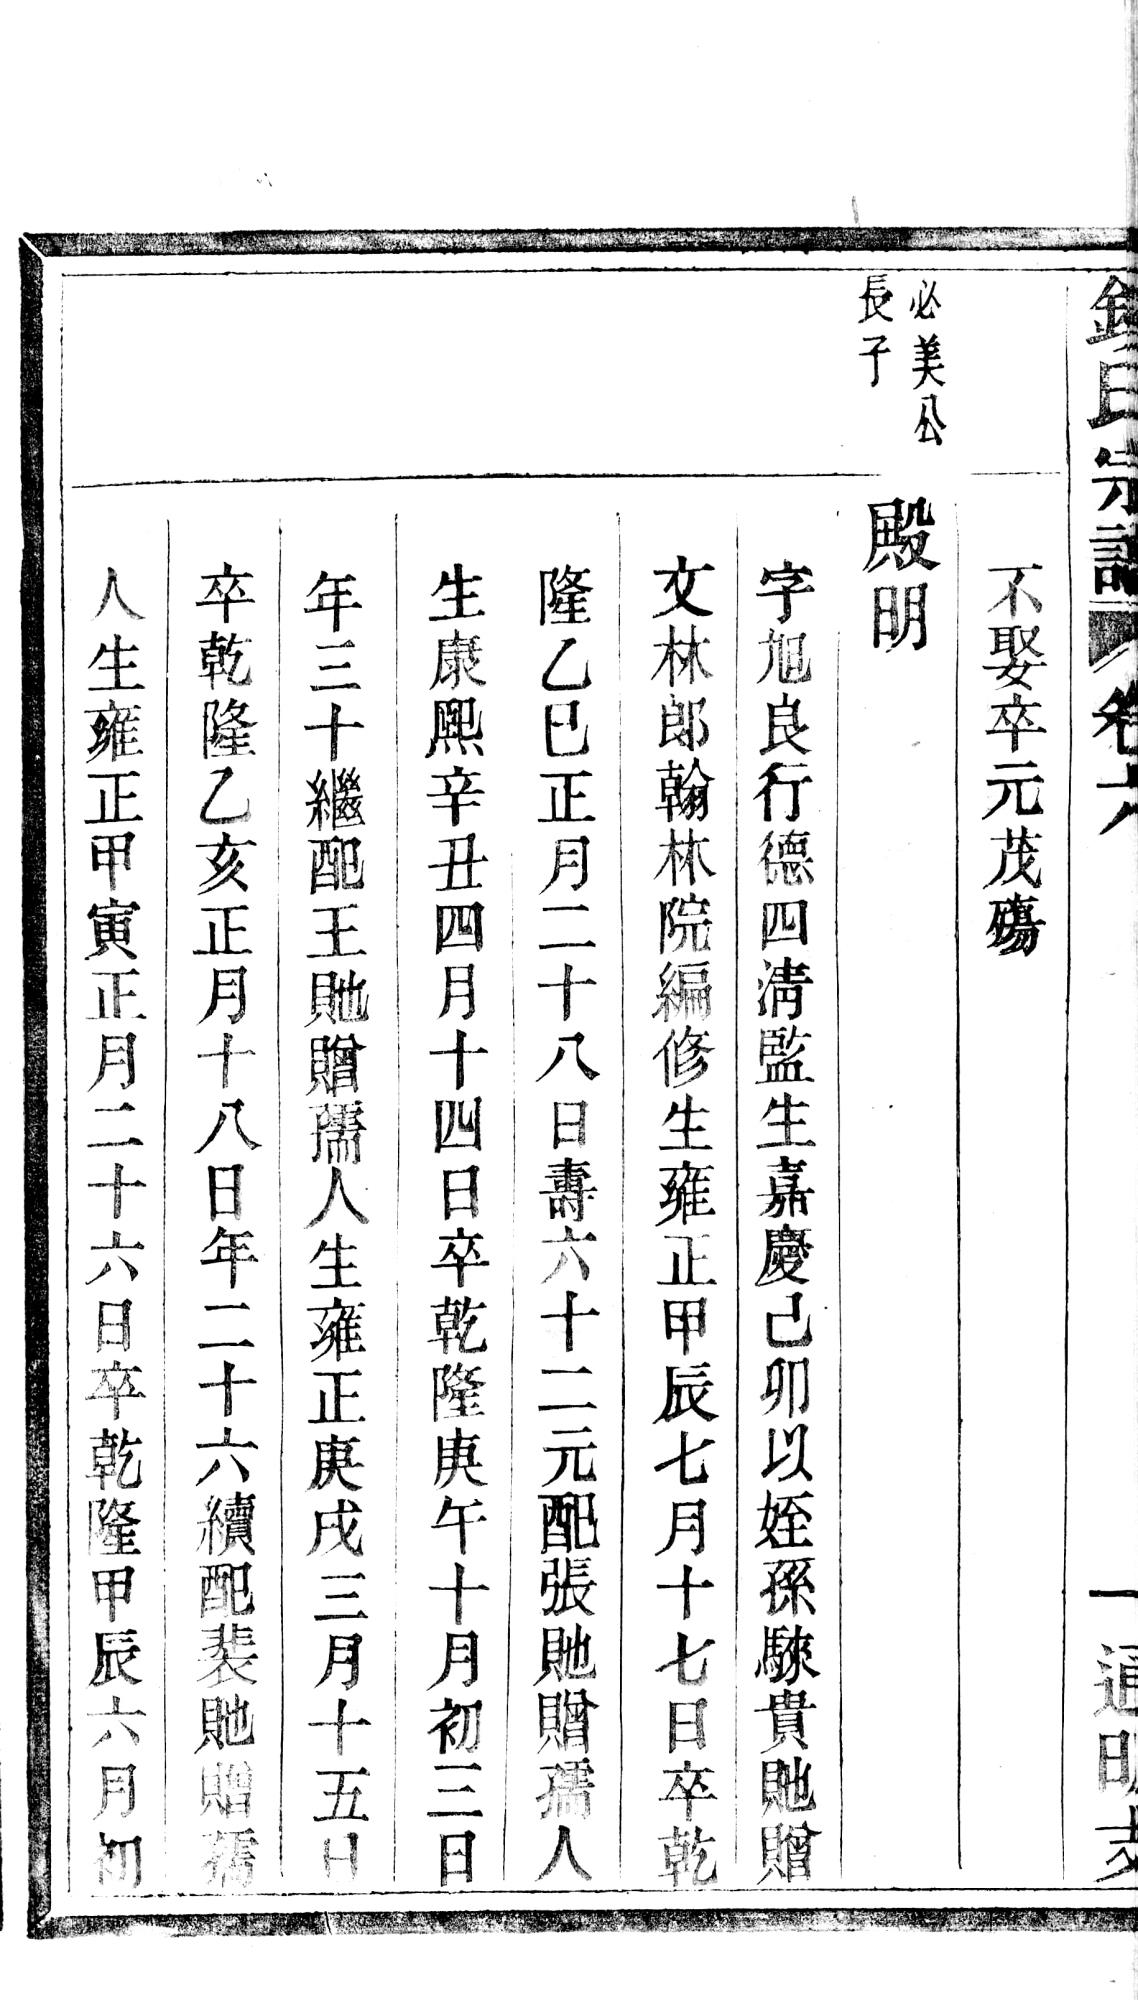 氏宗譜 卷六 一 通明支
不娶卒元茂殤
必美公
長子
殿明
字旭良行德四淸監生嘉慶己卯以姪孫騋貴貤贈
文林郎翰林院編修生雍正甲辰七月十七日卒乾
隆乙巳正月二十八日壽六十二元配張貤贈孺人
生康熙辛丑四月十四日卒乾隆庚午十月初三日
年三十繼配王貤贈孺人生雍正庚戌三月十五日
卒乾隆乙亥正月十八日年二十六續配裴貤贈孺
人生雍正甲寅正月二十六日卒乾隆甲辰六月初